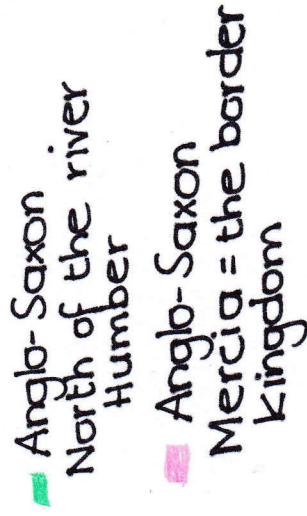 Anglo-Saxon
North of the river
Humber
Anglo-Saxon
Mercia = the border
Kingdom